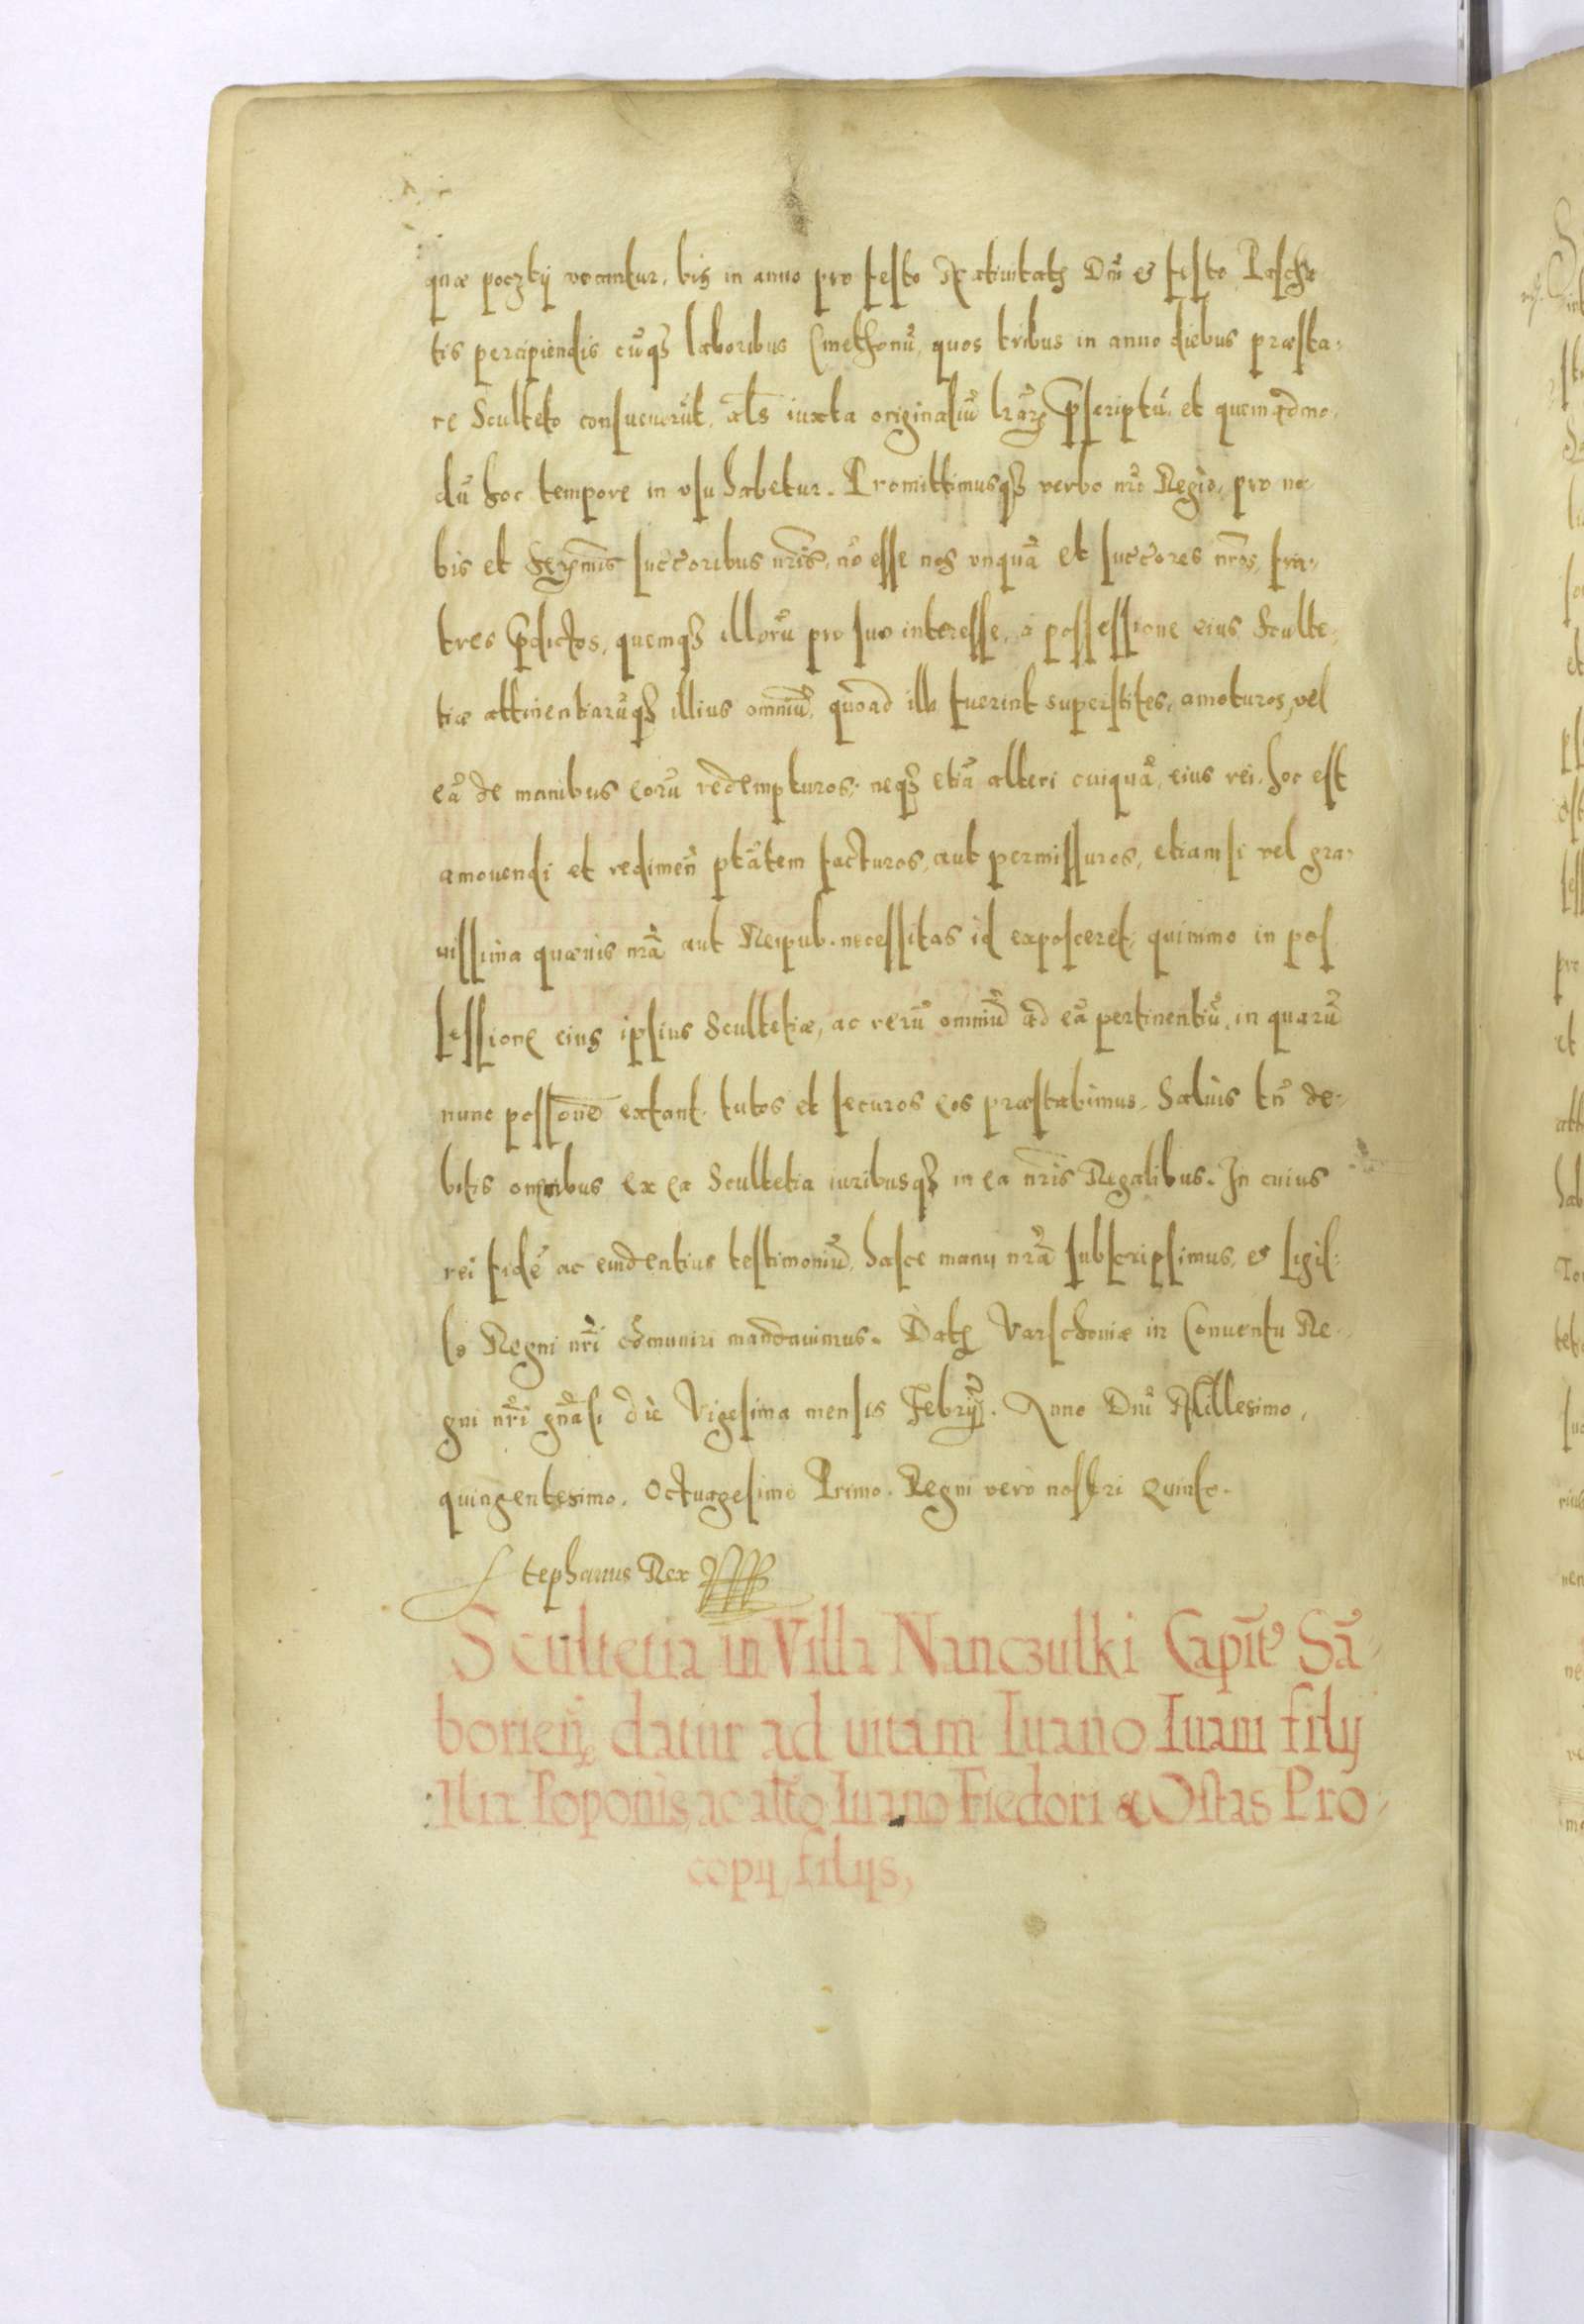 quæ poczty vocantur, bis in anno pro festo Natiuitatis Dni et festo Pascha-
tis percipiendis cũq₃ laboribus Cmethonũ, quos tribus in anno diebus præsta-
re Sculteto consueuerũt, als iuxta originaliũ lrãrũ p̃scriptũ, et quemadmo-
dũ hoc tempore in usu habetur. Promittimusq₃ verbo nrõ Regio, pro no-
bis et Serẽmis succoribus nrĩs, nõ esse nos vnquã et succores nrõs, fra-
tres p̃dictos, quemq₃ illorũ pro suo interesse, a possessione eius Sculte-
tiæ attinentiarũq₃ illius omniũ, quoad illi fuerint superstites, amoturos, vel
eã de manibus eorũ redempturos, neq₃ etiã alteri cuiquã, eius rei, hoc est
amouendi et redimeñ ptãtem facturos, aut permissuros, etiamsi vel gra-
uissima quæuis nrã aut Reipub. necessitas id exposceret, quinimo in pos
sessione eius ipsius Scultetiæ, ac rerũ omniũ ad eã pertinentiũ, in quarũ
nunc possõne extant, tutos et securos eos præstabimus. Saluis tñ de-
bitis omnibus ex ea Scultetia iuribusq₃ in ea nrĩs Regalibus. In cuius
rei fidẽ ac euidentius testimoniũ, hasce manu nrã subscripsimus, et sigil-
lo Regni nrĩ cõmuniri mandauimus. Dat Varschouiæ in Conuentu Re-
gni nrĩ gñali die Vigesima mensis Febrij. Anno Dni Millesimo,
quingentesimo, Octuagesimo Primo. Regni vero nostri Quinto.
Stephanus Rex
Scultetia in Villa Nanczulki Capit̃ Sã-
borieñ datur ad uitam Iuano Iuani filij
Ilia Poponis, ac alt̃o Iuano Fiedori & Ostas Pro-
copij filijs,